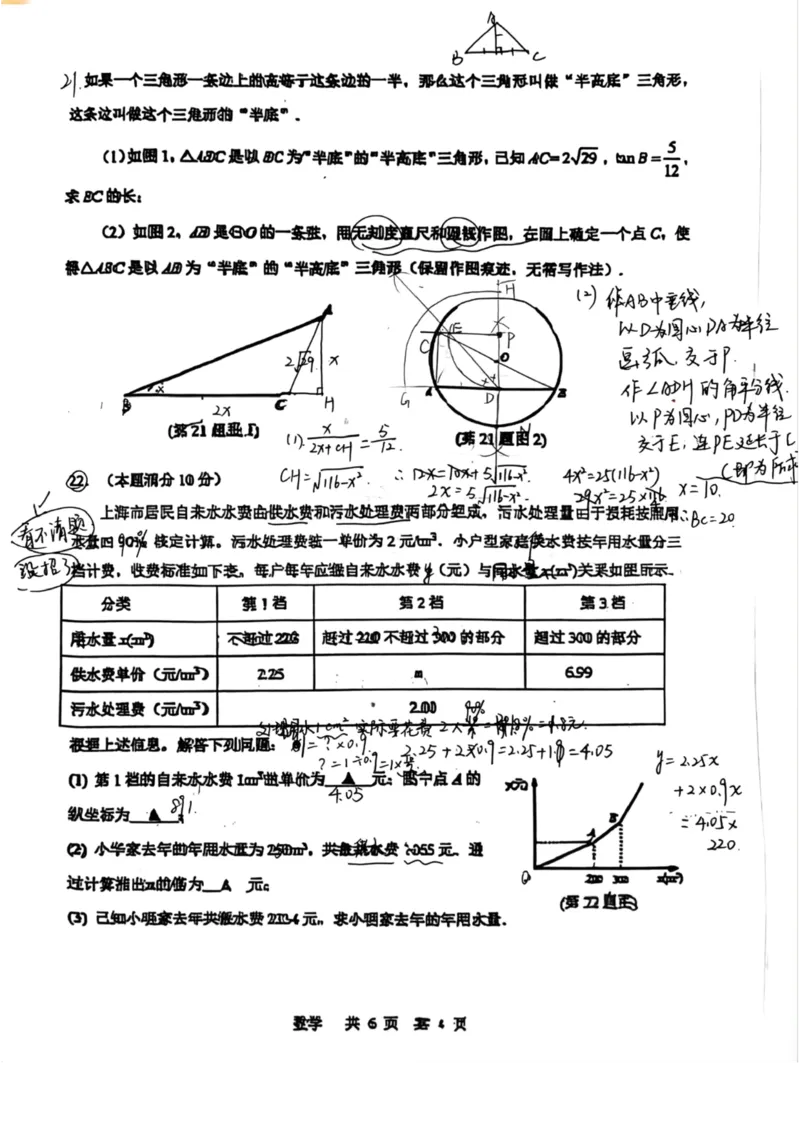 A
B C
21. 如果一个三角形一条边上的高等于这条边的一半，那么这个三角形叫做“半高底”三角形，
这条边叫做这个三角形的“半底”．
(1)如图1，△ABC是以BC为“半底”的“半高底”三角形，已知AC=2√29，tan B=5/12，
求BC的长；
(2) 如图2，AB是⊙O的一条弦，用无刻度直尺和圆规作图，在圆上确定一个点C，使
得△ABC是以AB为“半底”的“半高底”三角形（保留作图痕迹，无需写作法）．
(2) 作AB中垂线，
以D为圆心DA为半径
画弧交于P.
作∠ADH的角平分线.
以P为圆心，PD为半径
交于E，连PE延长于C
C即为所求
A
2√29 x
B 2x C H
(第21题图1)
H
C E P
O
G A D B
(第21题图2)
(1). x/(2x+CH) = 5/12
CH=√116-x² ∴12x=10x+5√116-x² 4x²=25(116-x²)
2x=5√116-x² 29x²=25×116 x=10.
∴BC=20
22. （本题满分10分）
看不清题
没招了
上海市居民自来水水费由供水费和污水处理费两部分组成，污水处理量由于损耗按照用
水量四90%核定计算。污水处理费统一单价为2元/m³．小户型家庭供水费按年用水量分三
档计费，收费标准如下表，每户每年应缴自来水水费y（元）与用水量x(m³)关系如图所示．
分类 第1档 第2档 第3档
用水量x(m³) 不超过220 超过220不超过300的部分 超过300的部分
供水费单价（元/m³） 2.25 m 6.99
污水处理费（元/m³） 2.00 90%
根据上述信息，解答下列问题：
?=1÷0.9 2.25+2×0.9=2.25+1.8=4.05
(1) 第1档的自来水水费1m³的单价为 ▲ 元；图中点A的
4.05
纵坐标为 ▲ ；
891.
(2) 小华家去年的年用水量为250m³，共缴水费1055元，通
过计算得出m的值为 ▲ 元；
(3) 已知小明家去年共缴水费
元，求小明家去年的年用水量．
y=2.25x
+2×0.9x
=4.05x
220.
y(元)
A B
O 220 300 x(m³)
(第22题图)
数学 共6页 第4页